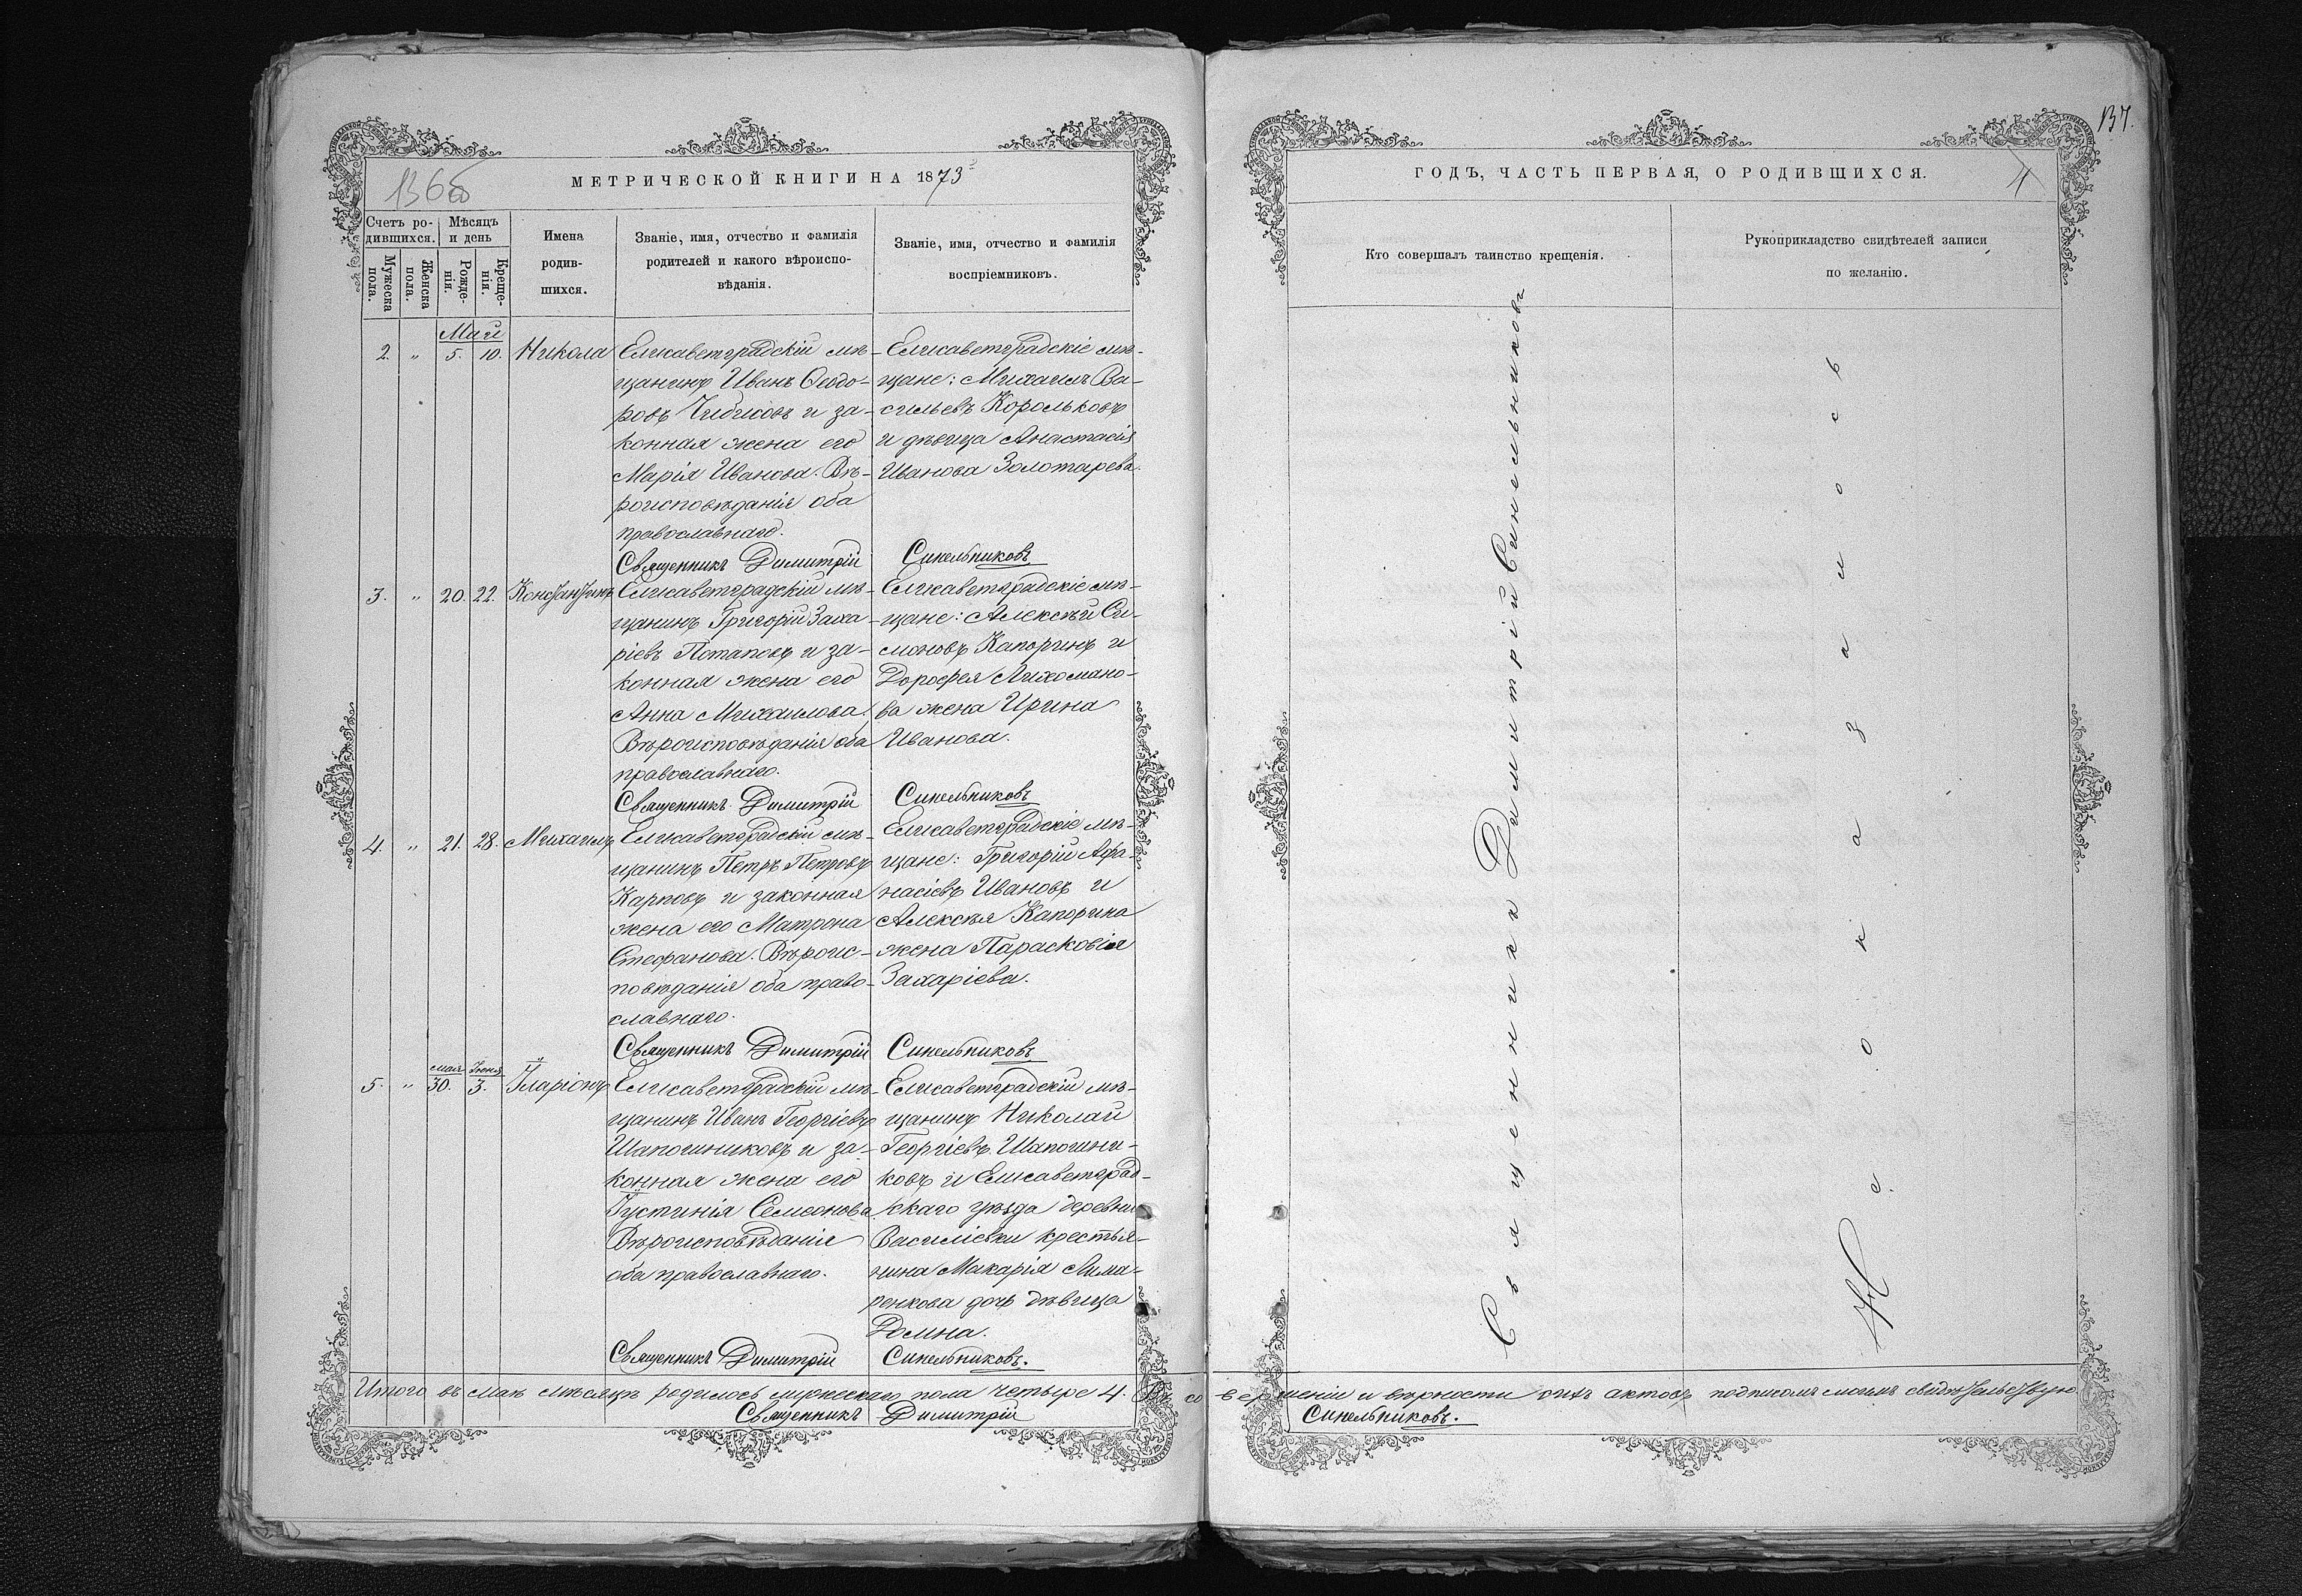 136об
МЕТРИЧЕСКОЙ КНИГИ НА 1873
Счетъ ро-
дившихся.
Мѣсяцъ
и день
Мужеска
пола.
Женска
пола.
Рожде-
нія.
Креще-
нія.
Имена
родив-
шихся.
Званіе, имя, отчество и фамилія
родителей и какого вѣроиспо-
вѣданія.
Званіе, имя, отчество и фамилія
воспріемниковъ.
Май
2. „ 5. 10. Никола
Елисаветградскій мѣ-
щанинъ Иванъ Ѳеодо-
ровъ Чибисовъ и за-
конная жена его
Марія Иванова. Вѣ-
роисповѣданія оба
православнаго.
Елисаветградскіе мѣ-
щане: Михаилъ Ва-
сильевъ Корольковъ
и дѣвица Анастасія
Иванова Золотарева.
Священникъ Димитрій Синельниковъ
3. „ 20. 22. Константинъ
Елисаветградскій мѣ-
щанинъ Григорій Заха-
ріевъ Потаповъ и за-
конная жена его
Анна Михаилова.
Вѣроисповѣданія оба
православнаго.
Елисаветградскіе мѣ-
щане: Алексѣй Си-
моновъ Капоринъ и
Дороѳея Лихомано-
ва жена Ирина
Иванова.
Священникъ Димитрій Синельниковъ
4. „ 21. 28. Михаилъ
Елисаветградскій мѣ-
щанинъ Петръ Петровъ
Карповъ и законная
жена его Матрона
Стефанова. Вѣроис-
повѣданія оба право-
славнаго.
Елисаветградскіе мѣ-
щане: Григорій Афа-
насіевъ Ивановъ и
Алексѣя Капорина
жена Парасковія
Захаріева.
Священникъ Димитрій Синельниковъ
мая Іюня
5. „ 30. 3. Іларіонъ
Елисаветградскій мѣ-
щанинъ Иванъ Георгіевъ
Шапошниковъ и за-
конная жена его
Іустинія Семеонова
Вѣроисповѣданія
оба православнаго.
Елисаветградскій мѣ-
щанинъ Николай
Георгіевъ Шапошни-
ковъ и Елисаветград-
скаго уѣзда деревни
Василіевки крестья-
нина Макарія Лима-
ренкова дочь дѣвица
Домна.
Священникъ Димитрій Синельниковъ.
137.
ГОДЪ, ЧАСТЬ ПЕРВАЯ, О РОДИВШИХСЯ.
4
Кто совершалъ таинство крещенія.
Рукоприкладство свидѣтелей записи
по желанію.
Священникъ Димитрій Синельниковъ
Итого въ маѣ мѣсяцѣ родилось мужескаго пола четыре 4. Въ совершеніи и вѣрности сихъ актовъ подписомъ моимъ свидѣтельствую
Священникъ Димитрій Синельниковъ.